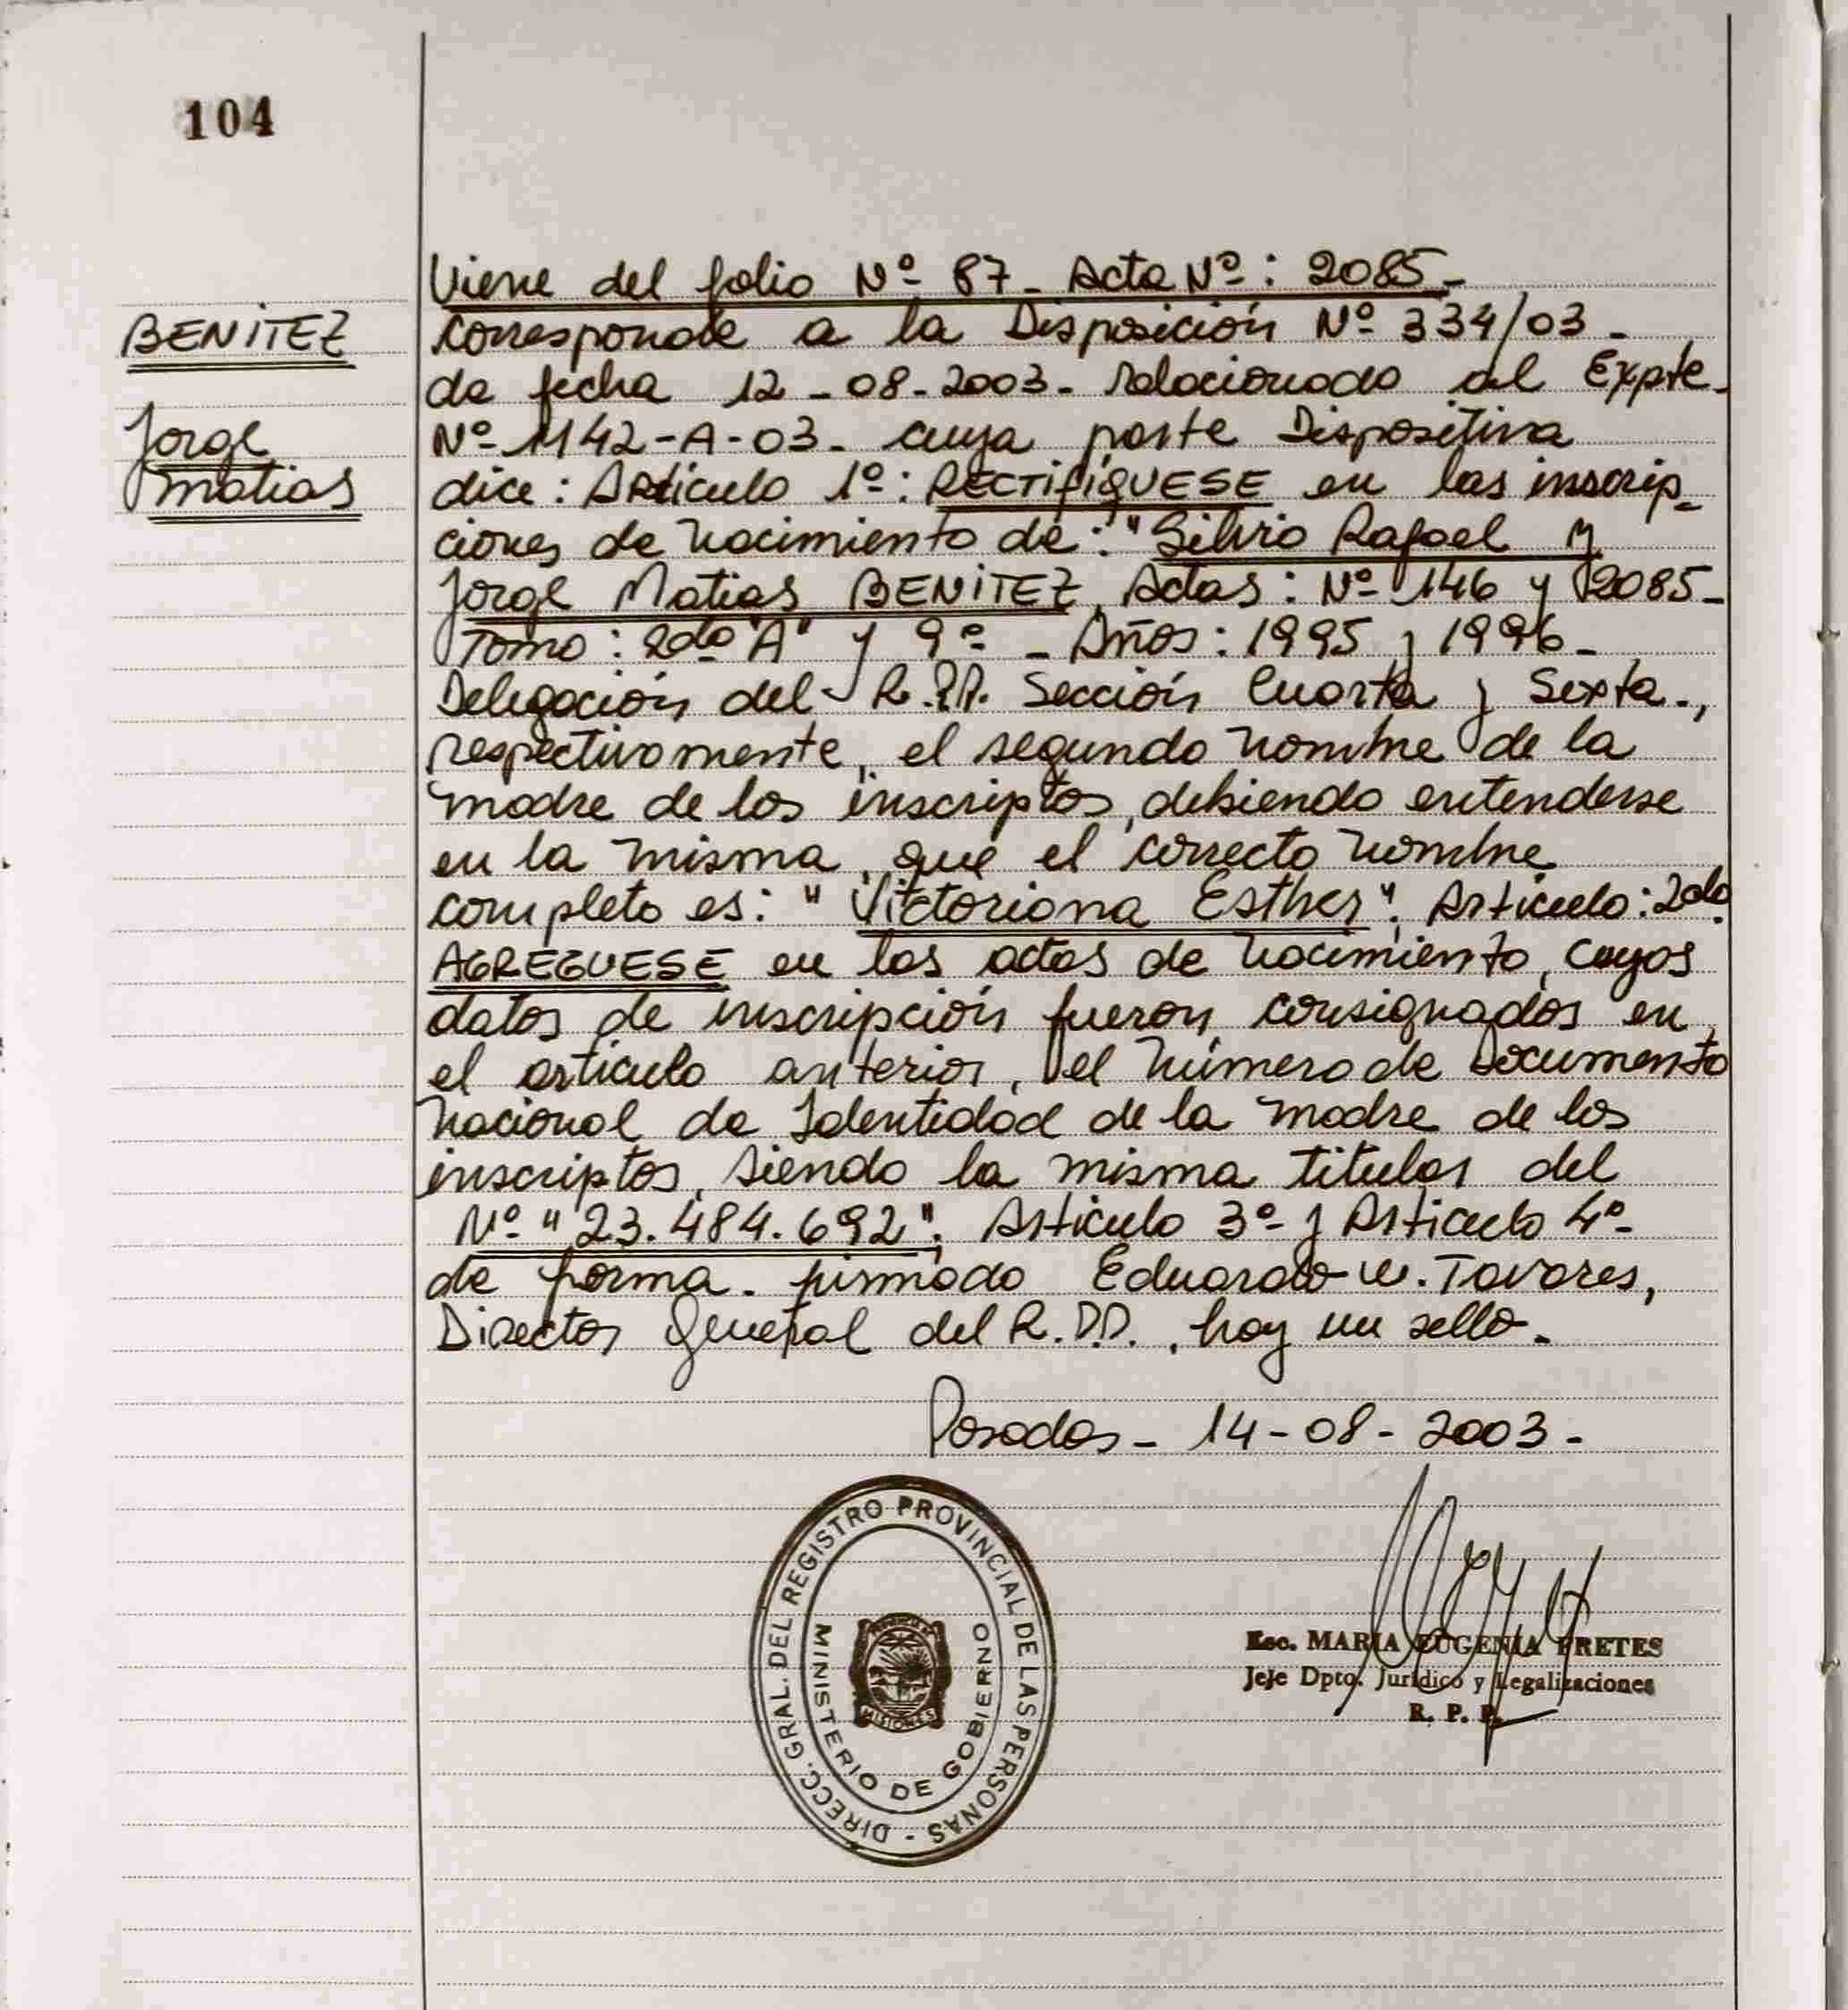 104
BENITEZ
Jorge
Matias
Viene del folio Nº 87 - Acta Nº: 2085 -
Corresponde a la Disposición Nº 334/03 -
de fecha 12 - 08 - 2003 - relacionado al Expte.
Nº 1142-A-03 - cuya parte Dispositiva
dice: Articulo 1º: RECTIFIQUESE en las inscrip-
ciones de nacimiento de: "Silvio Rafael y
Jorge Matias BENITEZ, Actas: Nº 146 y 2085 -
Tomo: 2do "A" y 9º - Años: 1995 y 1996 -
Delegación del R.P.P. Sección Cuarta y Sexta.,
respectivamente, el segundo nombre de la
madre de los inscriptos, debiendo entenderse
en la misma, que el correcto nombre
completo es: "Victoriana Esther". Articulo: 2do.
AGREGUESE en las actas de nacimiento, cuyos
datos de inscripción fueron consignados en
el articulo anterior, el número de Documento
Nacional de Identidad de la madre de los
inscriptos, siendo la misma titular del
Nº "23.484.692". Articulo 3º y Articulo 4º
de forma. firmado Eduardo W. Tavares,
Director General del R.P.P., hay un sello.
Posadas - 14 - 08 - 2003 -
DIRECC. GRAL. DEL REGISTRO PROVINCIAL DE LAS PERSONAS -
MINISTERIO DE GOBIERNO
MISIONES
Esc. MARIA EUGENIA FRETES
Jefe Dpto. Jurídico y Legalizaciones
R. P. P.